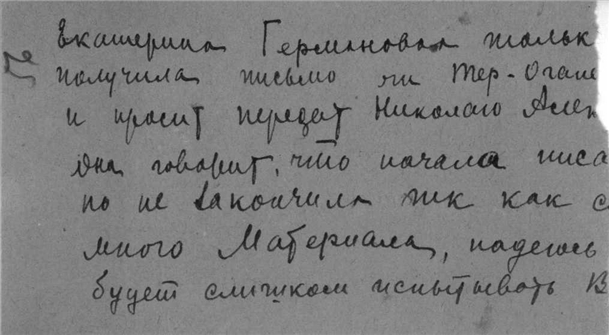 Екатерина Германовна тольк
получила письмо Тер-Огане
и просит передат Николаю Алек
она говорит, что начала писа
но не закончила так как с
много Материала, надеюсь
будет слишком испытывать В